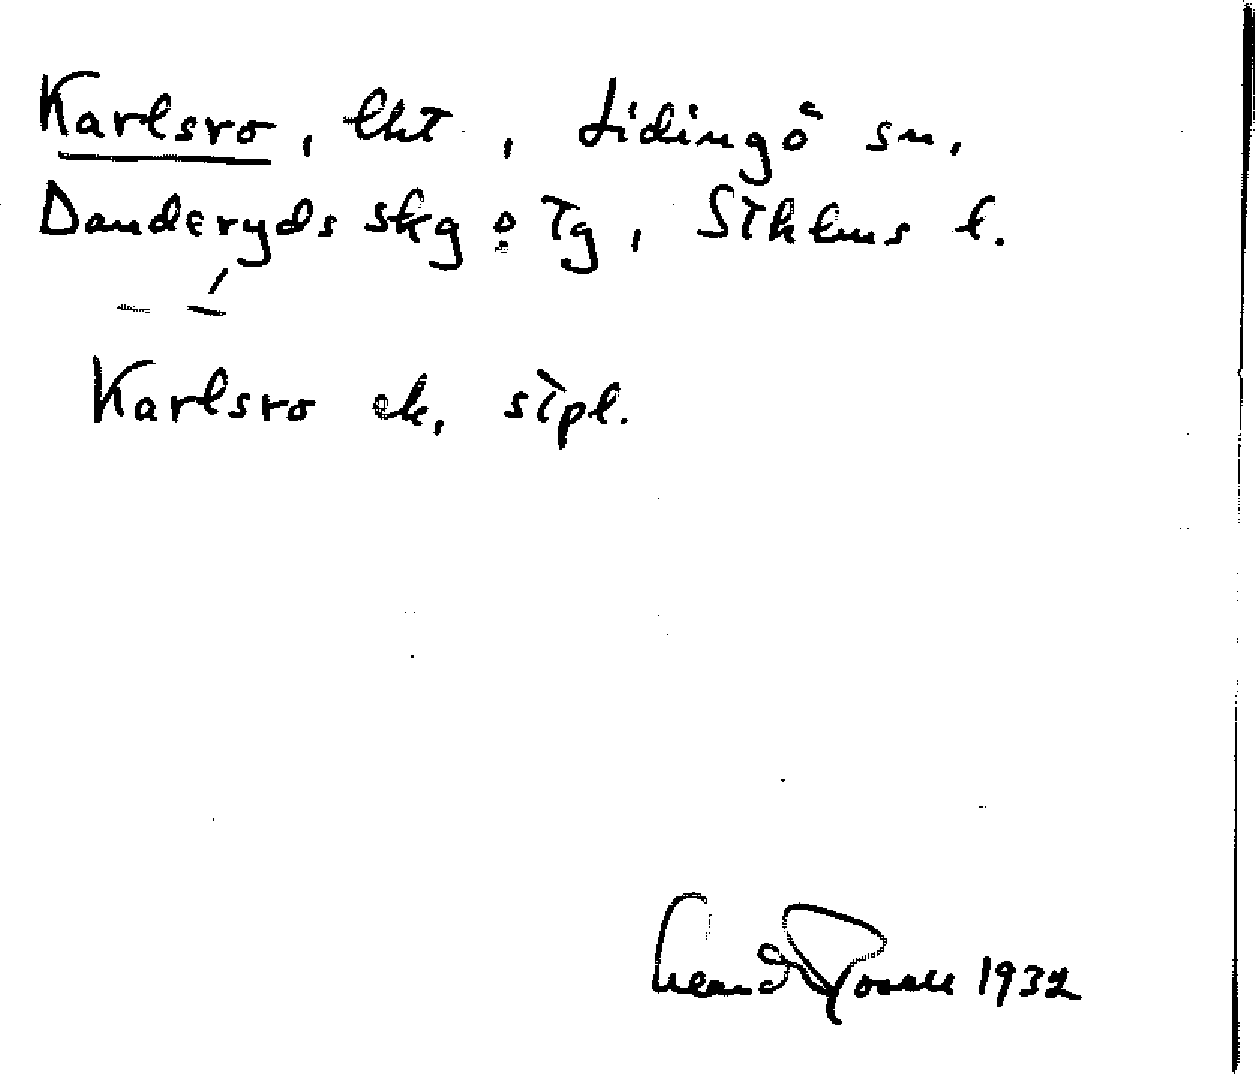 Karlsro, lht, Lidingö sn,
Danderyds skg o Tg, Sthlms l.
Karlsro ek, stpl.
1932